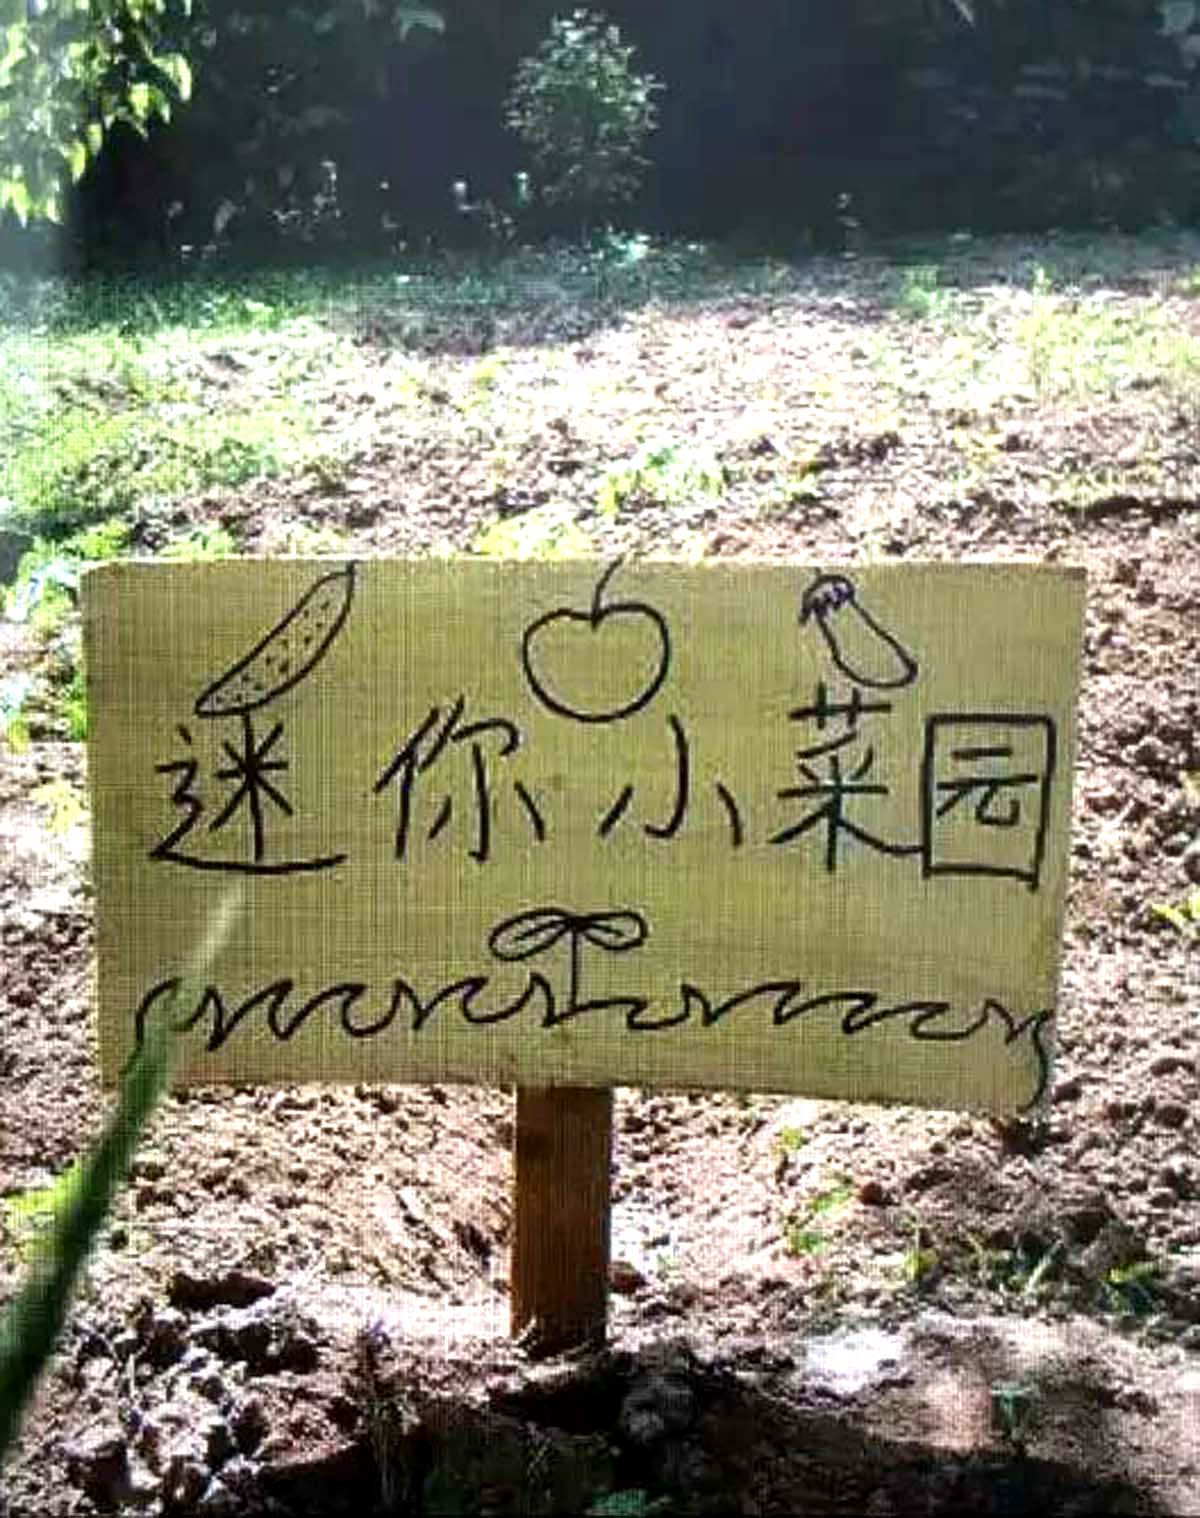 迷你小菜园